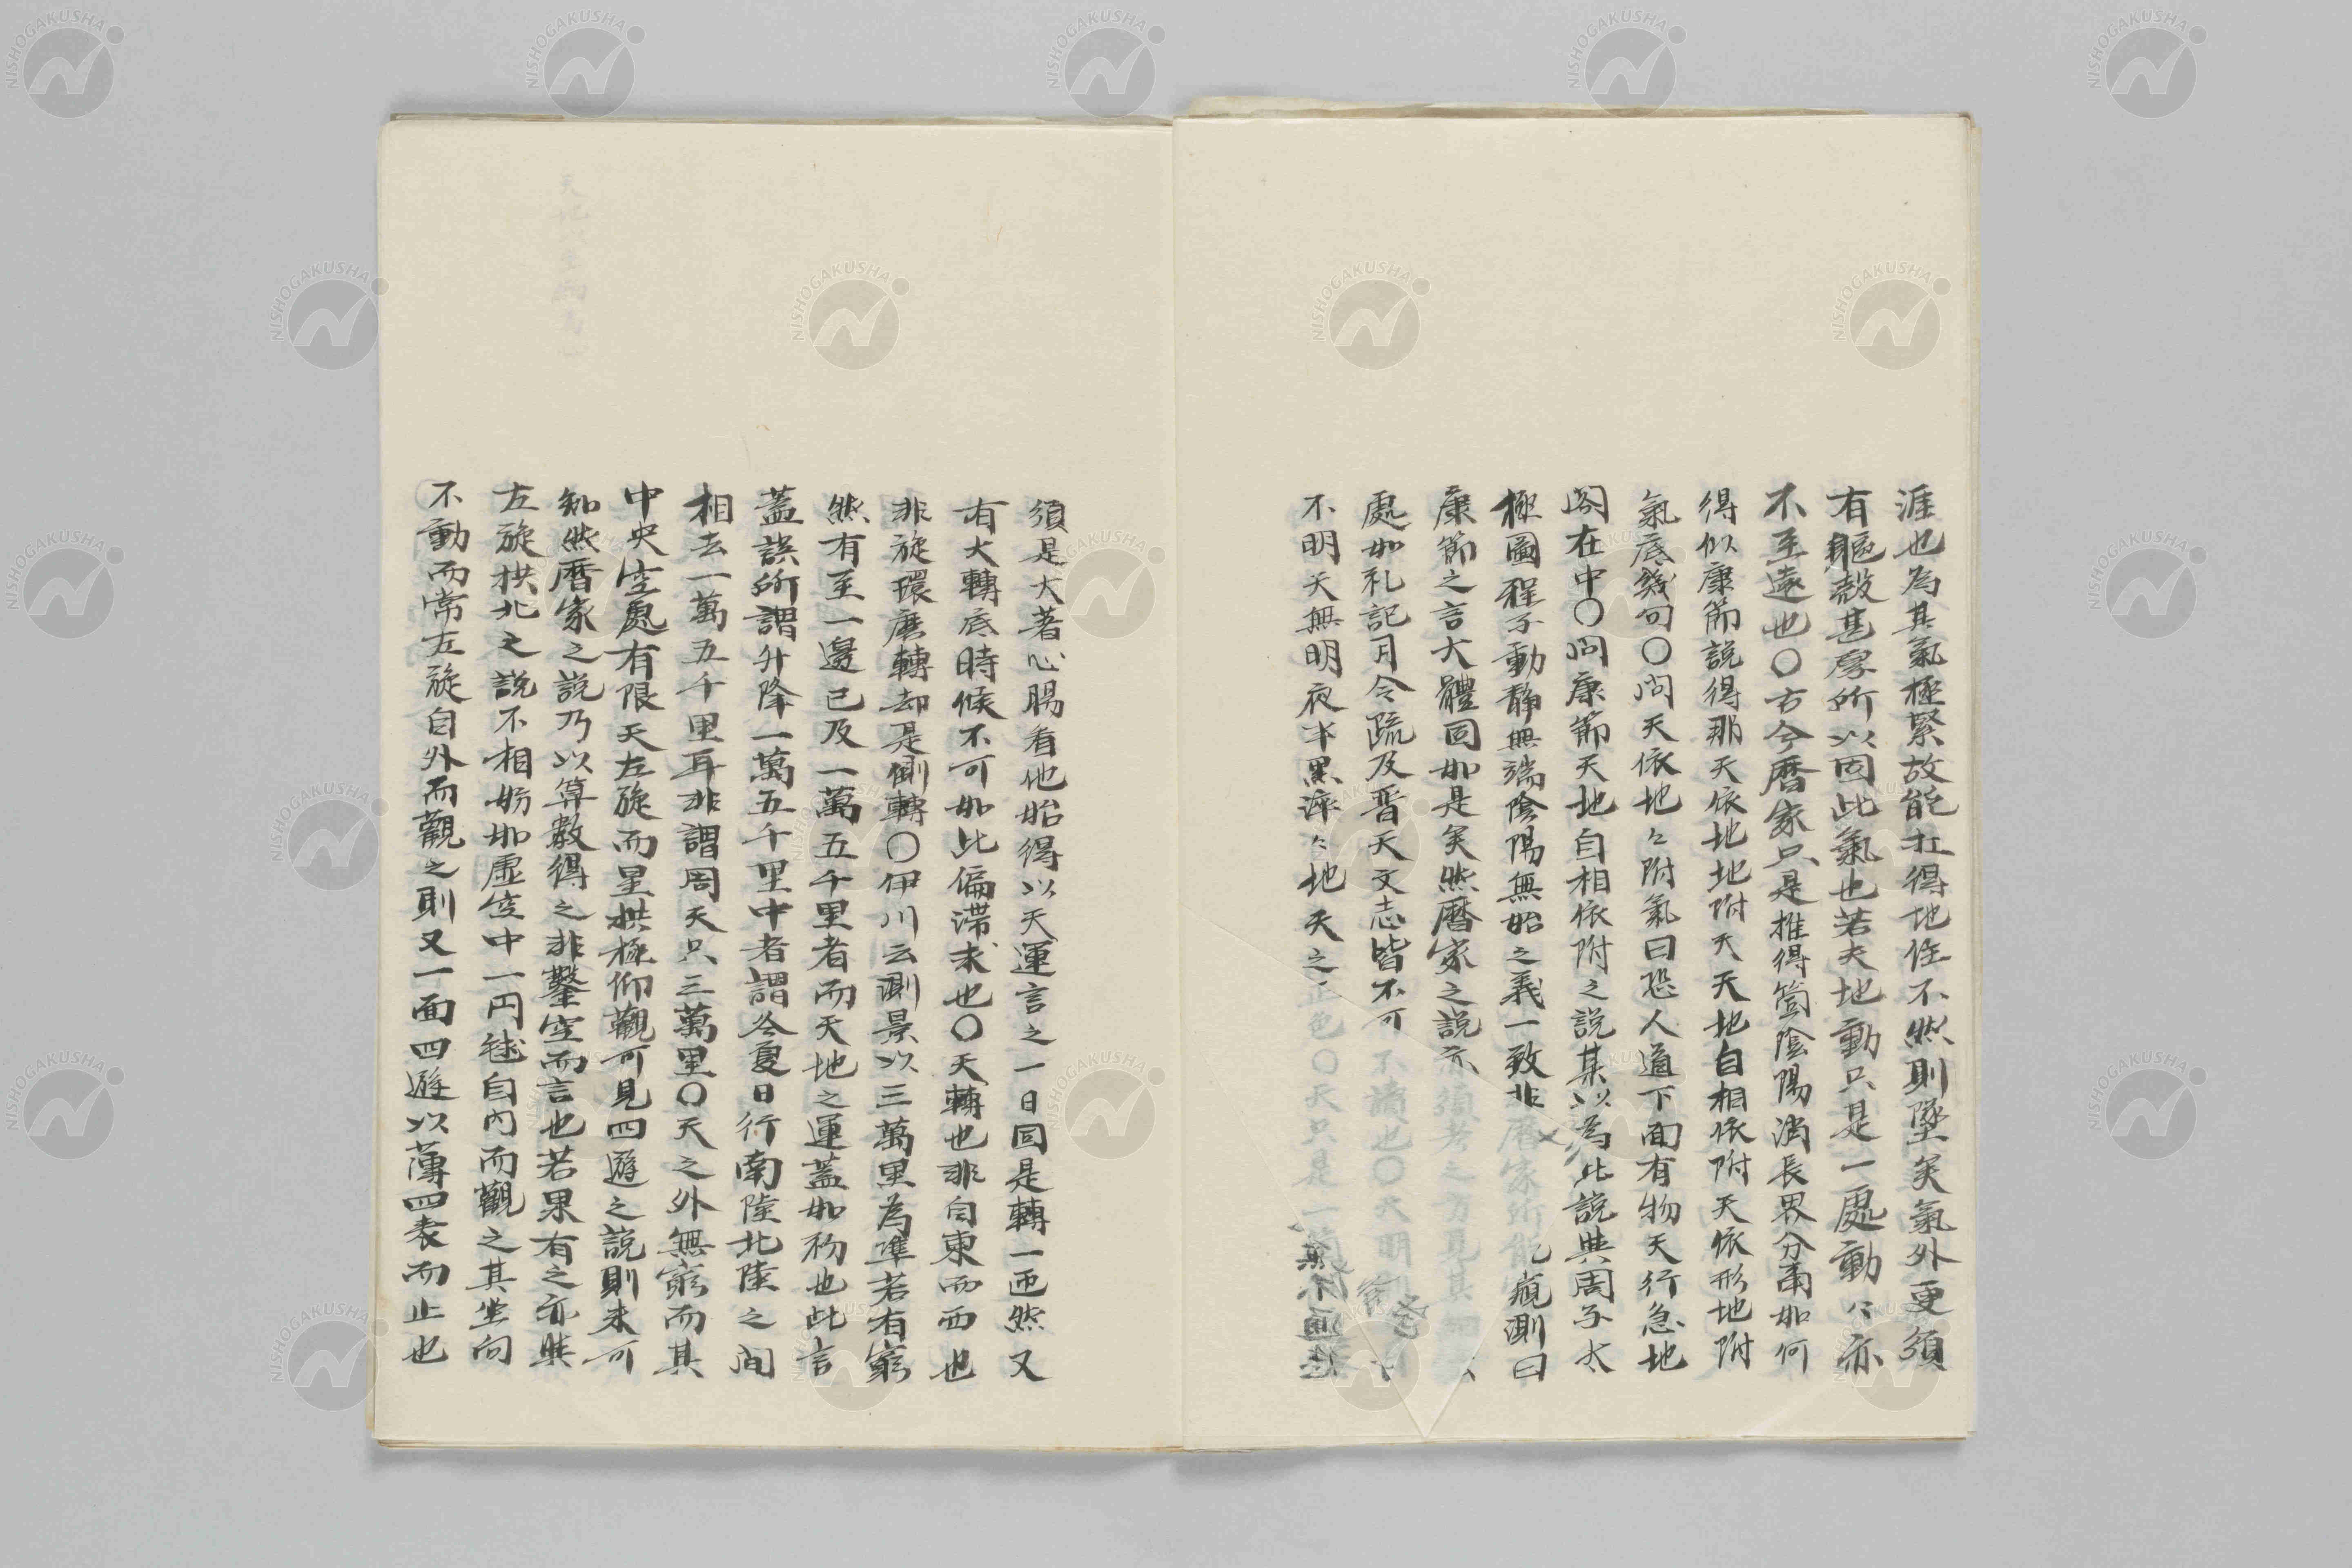 涯也為其氣極緊故能扛得地住不然則墜矣氣外更須
有軀殼甚厚所以固此氣也若夫地動只是一處動〻亦
不至遠也〇古今暦家只是推得箇陰陽消長界分甫如何
得似康節說得那天依地地附天天地自相依附天依形地附
氣底幾句〇問天依地〻附氣曰恐人道下面有物天行急地
閣在中〇問康節天地自相依附之說某以為此說與周子太
極圖程子動静無端陰陽無始之義一致非曆家所能窺測曰
康節之言大體固如是矣然暦家之說亦須考之方見其
處如礼記月令疏及晋天文志皆不可不讀也〇天明則
不明天無明夜半黒淬〻地天之正色〇天只是一
須是大著心腸看他始得以天運言之一日固是轉一匝然又
有大轉底時候不可如此偏滞求也〇天轉也非自東而西也
非旋環磨轉却是側轉〇伊川云測景以三萬里為準若有窮
然有至一邊已及一萬五千里者而天地之運蓋如初也此言
蓋誤所謂升降一萬五千里中者謂冬夏日行南陸北陸之間
相去一萬五千里耳非謂周天只三萬里〇天之外無窮而其
中央空處有限天左旋而星拱極仰觀可見四遊之說則未可
知然暦家之說乃以算數得之非鑿空而言也若果有之亦與
左旋拱北之說不相妨如虚空中一円毬自内而觀之其坐向
不動而常左旋自外而觀之則又一面四遊以薄四表而止也
NISHOGAKUSHA